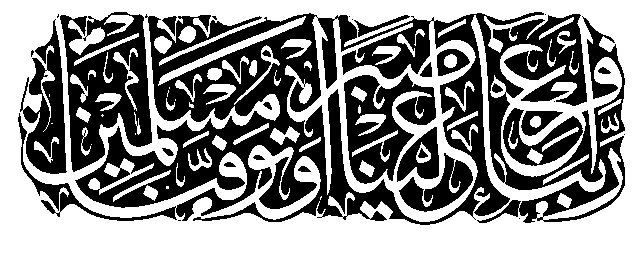 ربنا أفرغ علينا صبرا وتوفنا مسلمين